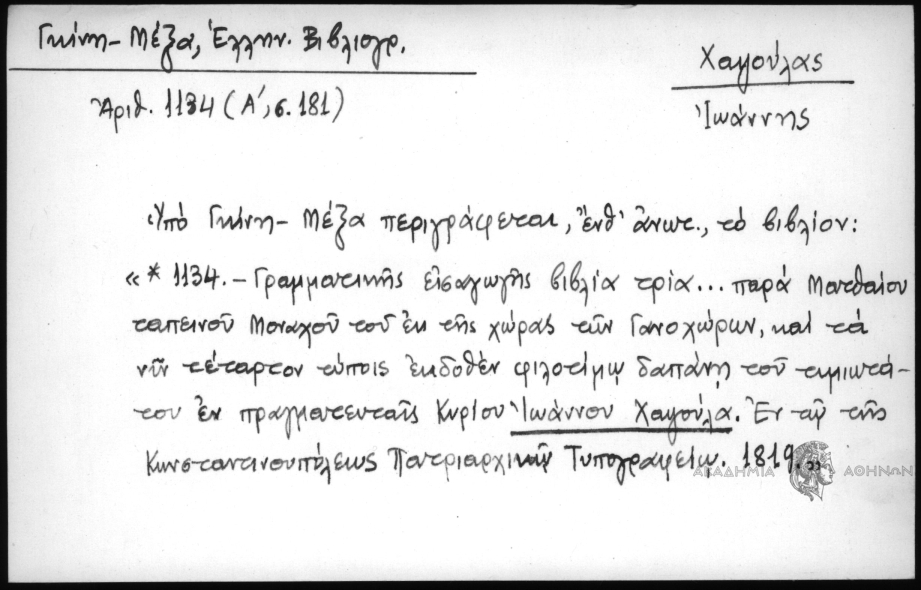 Γκίνη - Μέξα, Ἑλλην. Βιβλιογρ.
Χαψούλας
Ἀριθ. 1134 (Α΄, σ. 181)
Ἰωάννης
Ὑπό Γκίνη - Μέξα περιγράφεται, ἔνθ' ἀνωτ., τό βιβλίον:
«* 1134. - Γραμματικῆς εἰσαγωγῆς βιβλία τρία... παρά Ματθαίου
ταπεινοῦ Μοναχοῦ τοῦ ἐκ τῆς χώρας τῶν Γανοχώρων, καί τά
νῦν τέταρτον τύποις ἐκδοθέν φιλοτίμῳ δαπάνῃ τοῦ τιμιωτά-
του ἐν πραγματευταῖς Κυρίου Ἰωάννου Χαψούλα. Ἐν τῷ τῆς
Κωνσταντινουπόλεως Πατριαρχικῷ Τυπογραφείῳ. 1819.»
ΑΚΑΔΗΜΙΑ ΑΘΗΝΩΝ